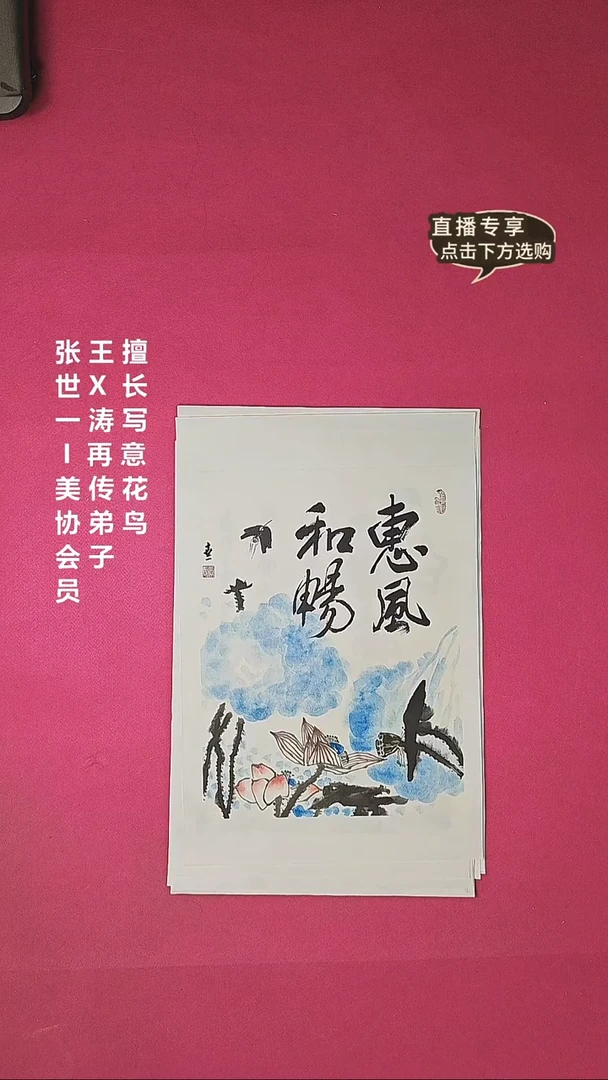 直播专享
点击下方选购
张世一I美协会员
王X涛再传弟子
擅长写意花鸟
惠風
和暢